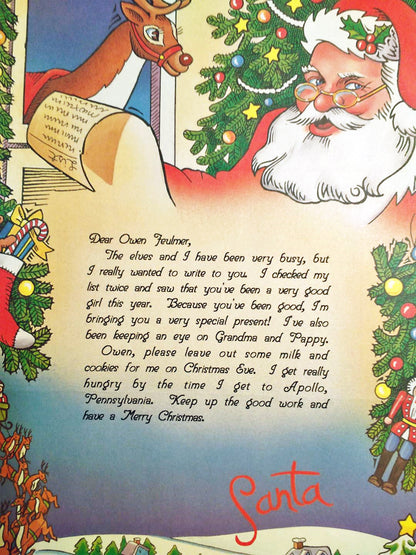 List
Dear Owen Feulmer,
The elves and I have been very busy, but
I really wanted to write to you. I checked my
list twice and saw that you've been a very good
girl this year. Because you've been good, I'm
bringing you a very special present! I've also
been keeping an eye on Grandma and Pappy.
Owen, please leave out some milk and
cookies for me on Christmas Eve. I get really
hungry by the time I get to Apollo,
Pennsylvania. Keep up the good work and
have a Merry Christmas.
Santa